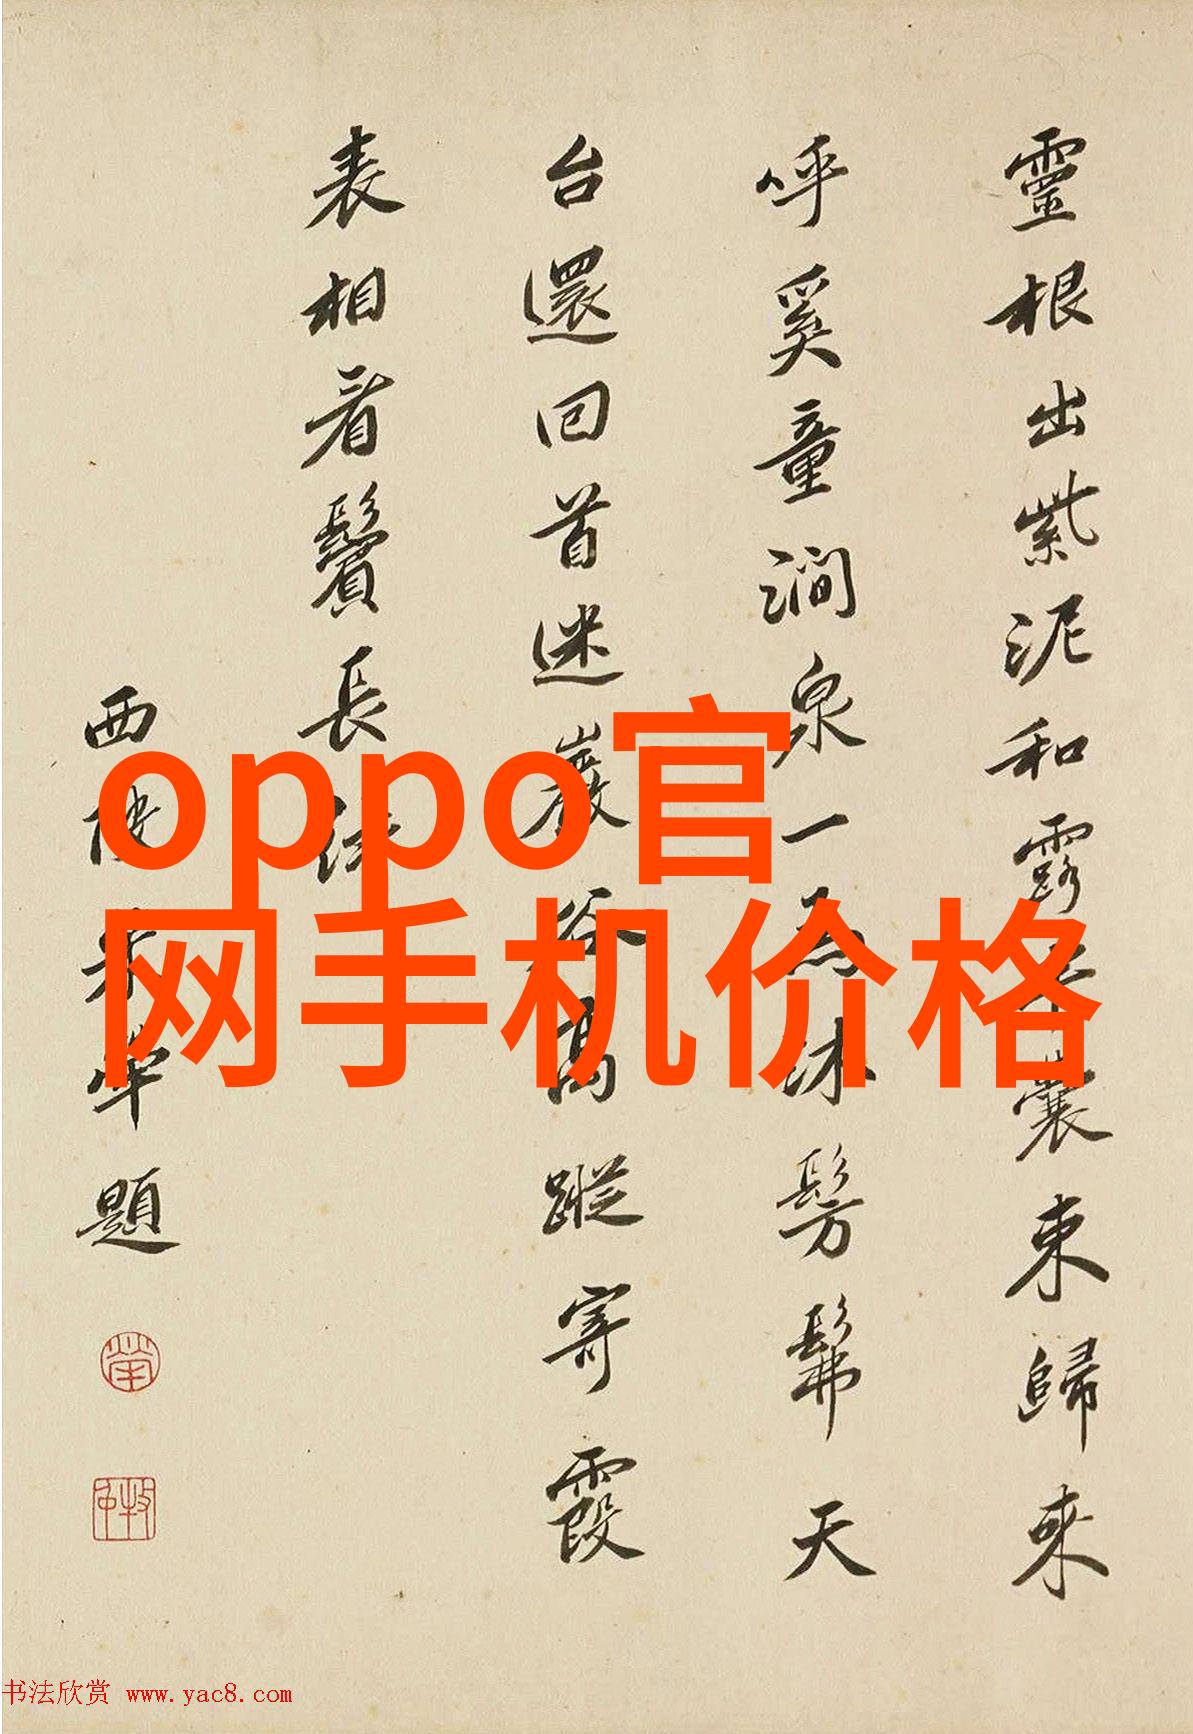 靈根出紫泥和露囊束歸来
呼奚童澗泉一為沐髣髴天
台還回首迷巖谷高蹤寄霞
表相看鬢長
西陂宋犖題
犖
牧仲
oppo官
网手机价格
书法欣赏 www.yac8.com